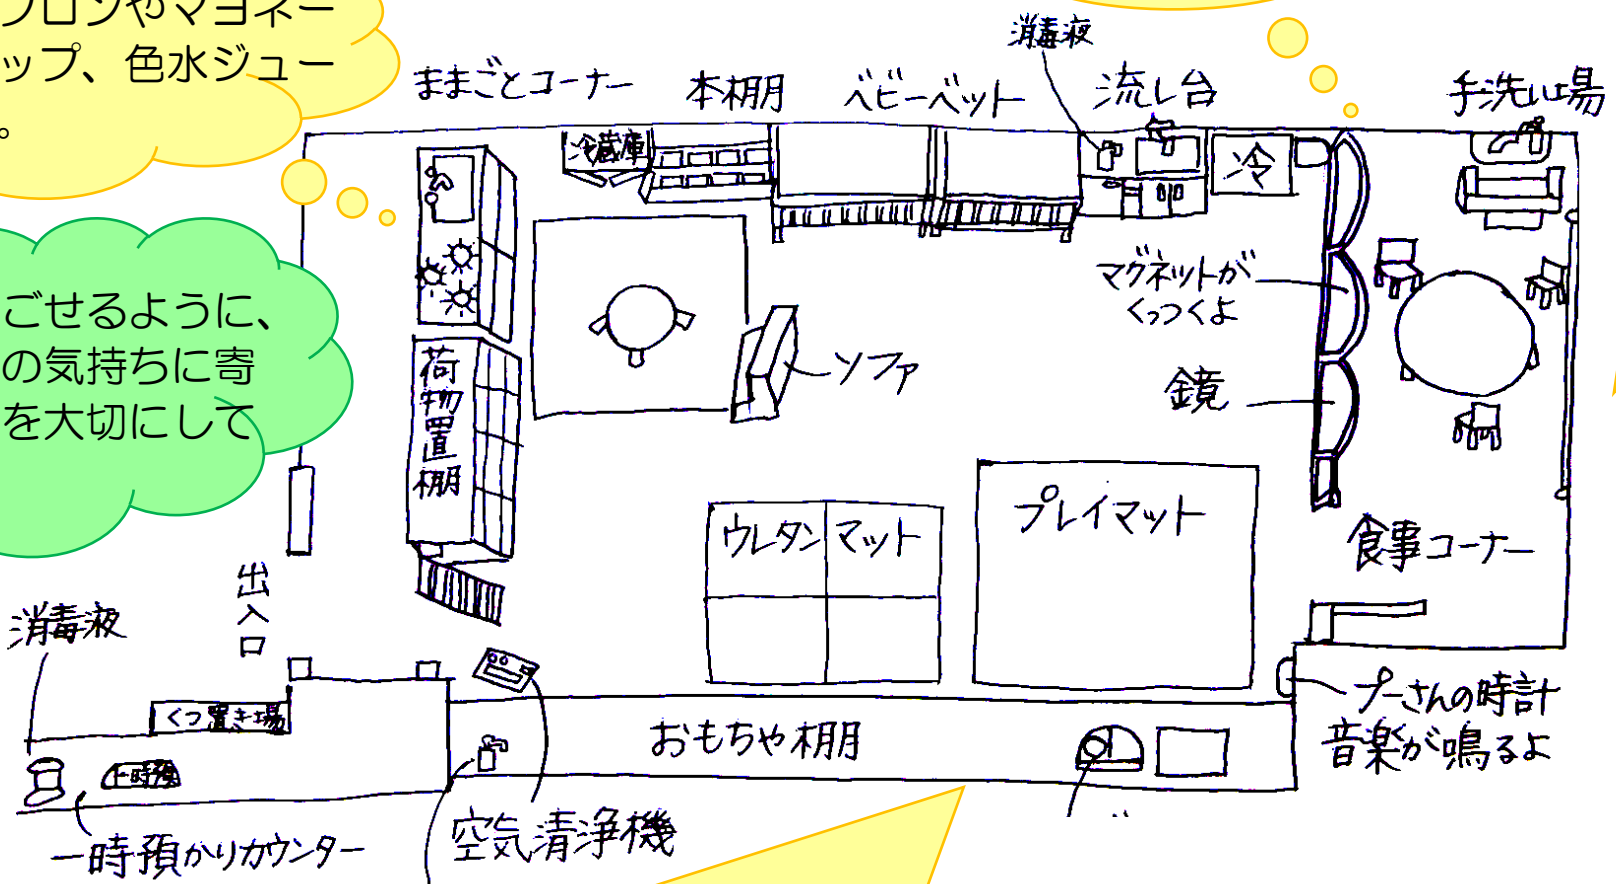 フロンやマヨネー
ップ、色水ジュー
。
ごせるように、
の気持ちに寄
を大切にして
ままごとコーナー
本棚
ベビーベット
消毒液
流し台
手洗い場
冷蔵庫
冷
マグネットが
くっつくよ
ソファ
鏡
荷物置棚
ウレタンマット
プレイマット
食事コーナー
出入口
消毒液
くつ置き場
一時預
一時預かりカウンター
おもちゃ棚
空気清浄機
プーさんの時計
音楽が鳴るよ